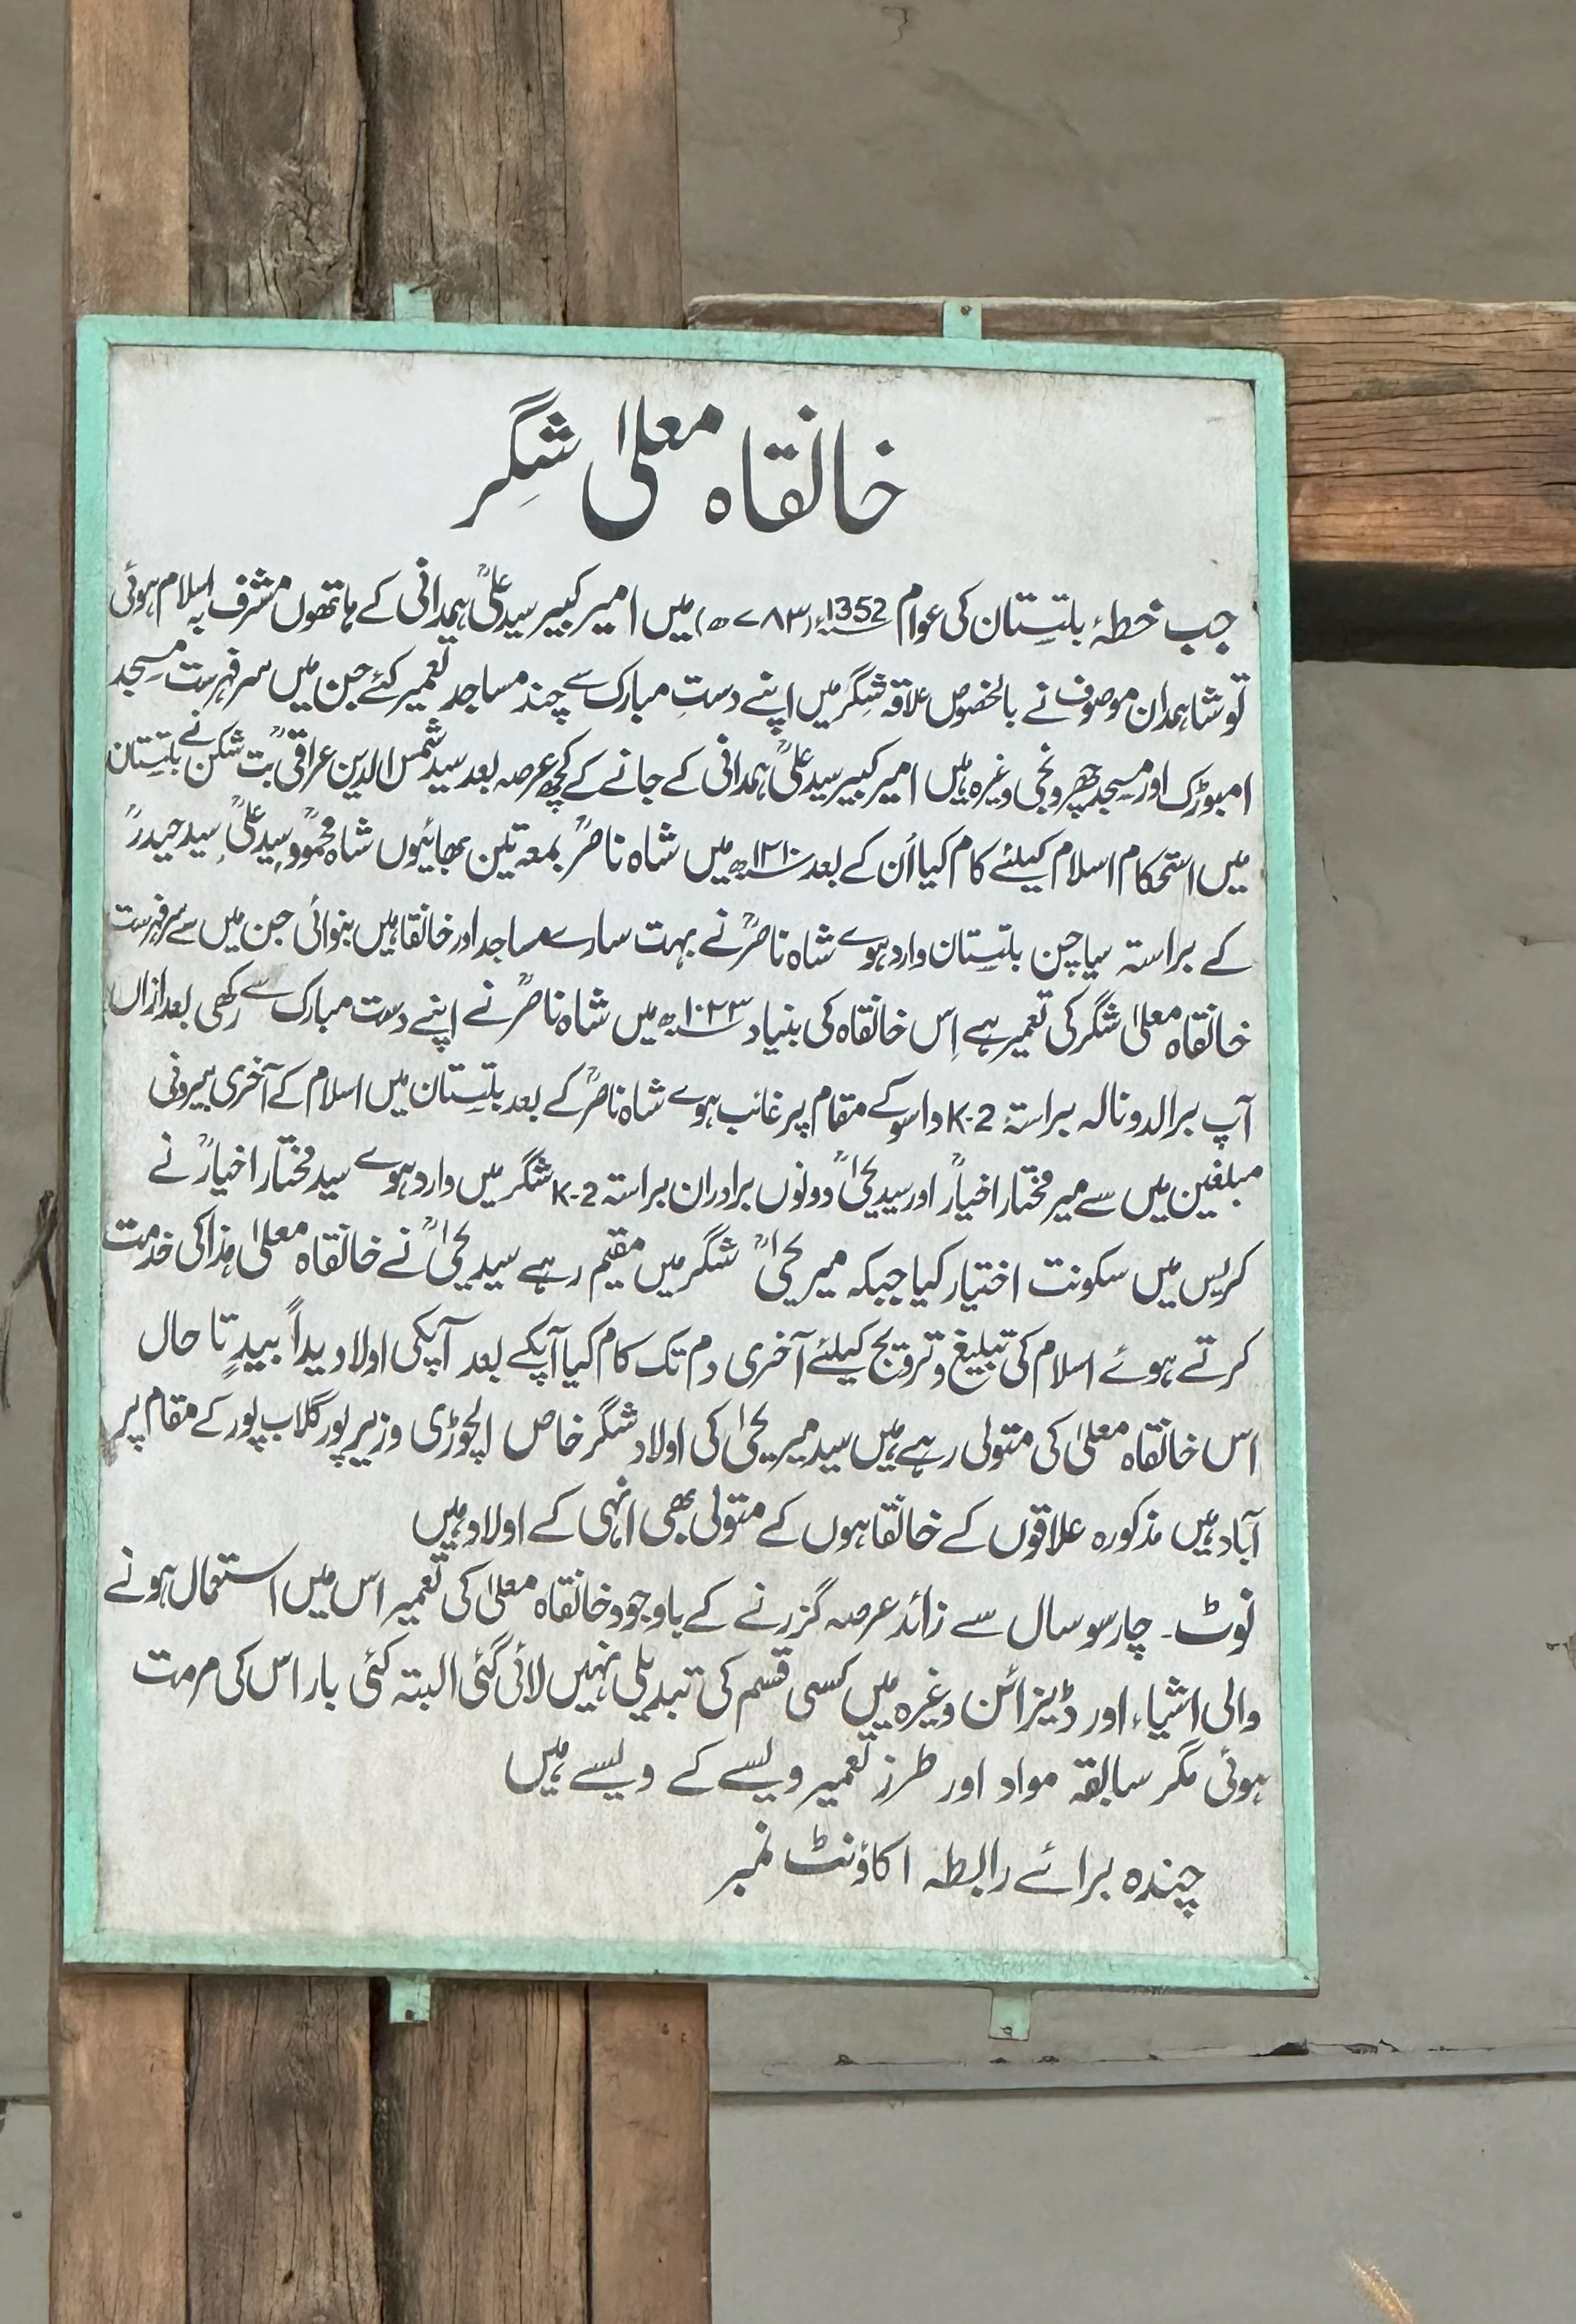 خانقاہ معلیٰ شِگر
جب خطۂ بلتِستان کی عوام 1352ء (۷۸۳ھ) میں امیر کبیر سید علیؒ ہمدانی کے ہاتھوں مشرف بہ اسلام ہوئی
تو شاہمدان موصوف نے بالخصوص علاقہ شِگر میں اپنے دستِ مبارک سے چند مساجد تعمیر کئے جن میں سرفہرست مسجد
امبوڑک اور مسجد چھرونجی وغیرہ ہیں امیر کبیر سید علیؒ ہمدانی کے جانے کے کچھ عرصہ بعد سید شمس الدین عراقیؒ بت شکن نے بلتِستان
میں استحکام اسلام کیلئے کام کیا اُن کے بعد ۱۲۱۰ھ میں شاہ ناصرؒ بمعہ تین بھائیوں شاہ محمودؒ سید علیؒ سید حیدرؒ
کے براستہ سیاچن بلتِستان وارد ہوے شاہ ناصرؒ نے بہت سارے مساجد اور خانقاہیں بنوائی جن میں سے سرفہرست
خانقاہ معلیٰ شگر کی تعمیر ہے اِس خانقاہ کی بنیاد ۱۰۲۳ھ میں شاہ ناصرؒ نے اپنے دست مبارک سے رکھی بعد ازاں
آپ برالدو نالہ براستۂ K-2 داسو کے مقام پر غائب ہوے شاہ ناصرؒ کے بعد بلتِستان میں اسلام کے آخری بیرونی
مبلغین میں سے میر مختار اخیارؒ اور سید یحیٰؒ دونوں برادران براستہ K-2 شگر میں وارد ہوے سید مختار اخیارؒ نے
کریس میں سکونت اختیار کیا جبکہ میر یحیٰؒ شگر میں مقیم رہے سید یحیٰؒ نے خانقاہ معلیٰ ہذا کی خدمت
کرتے ہوئے اسلام کی تبلیغ و ترویج کیلئے آخری دم تک کام کیا آپکے بعد آپکی اولاد یداً بیدٍ تا حال
اس خانقاہ معلیٰ کی متولی رہے ہیں سید میر یحیٰ کی اولاد شگر خاص الچوڑی وزیر پور گلاب پور کے مقام پر
آباد ہیں مذکورہ علاقوں کے خانقاہوں کے متولی بھی انہی کے اولاد ہیں
نوٹ۔ چار سو سال سے زائد عرصہ گزرنے کے باوجود خانقاہ معلیٰ کی تعمیر اس میں استعمال ہونے
والی اشیاء اور ڈیزائن وغیرہ میں کسی قسم کی تبدیلی نہیں لائی گئی البتہ کئی بار اس کی مرمت
ہوئی مگر سابقہ مواد اور طرز تعمیر ویسے کے ویسے ہیں
چندہ برائے رابطہ اکاؤنٹ نمبر